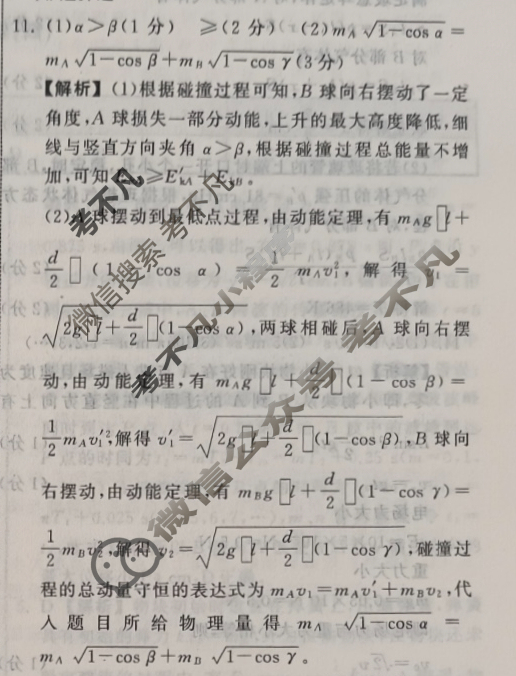 11. (1)α＞β(1 分)　≥(2 分)　(2)m_A √(1-cos α) =
m_A √(1-cos β) + m_B √(1-cos γ)(3 分)
【解析】(1)根据碰撞过程可知,B 球向右摆动了一定
角度,A 球损失一部分动能,上升的最大高度降低,细
线与竖直方向夹角 α＞β,根据碰撞过程总能量不增
加,可知 ≥E′kA+EkB。
(2)A 球摆动到最低点过程,由动能定理,有 m_A g▯l+
d/2▯(1-cos α) = 1/2 m_A v₁²,解得 v₁ =
√(2g▯l+d/2▯(1-cos α)),两球相碰后,A 球向右摆
动,由动能定理,有 m_A g▯l+d/2▯(1-cos β) =
1/2 m_A v₁′²,解得 v₁′=√(2g▯l+d/2▯(1-cos β)),B 球向
右摆动,由动能定理,有 m_B g▯l+d/2▯(1-cos γ) =
1/2 m_B v₂²,解得 v₂=√(2g▯l+d/2▯(1-cos γ)),碰撞过
程的总动量守恒的表达式为 m_A v₁=m_A v₁′+m_B v₂,代
入题目所给物理量得 m_A √(1-cos α) =
m_A √(1-cos β) + m_B √(1-cos γ)。
微信搜索 考不凡小程序
考不凡
微信公众号 考不凡